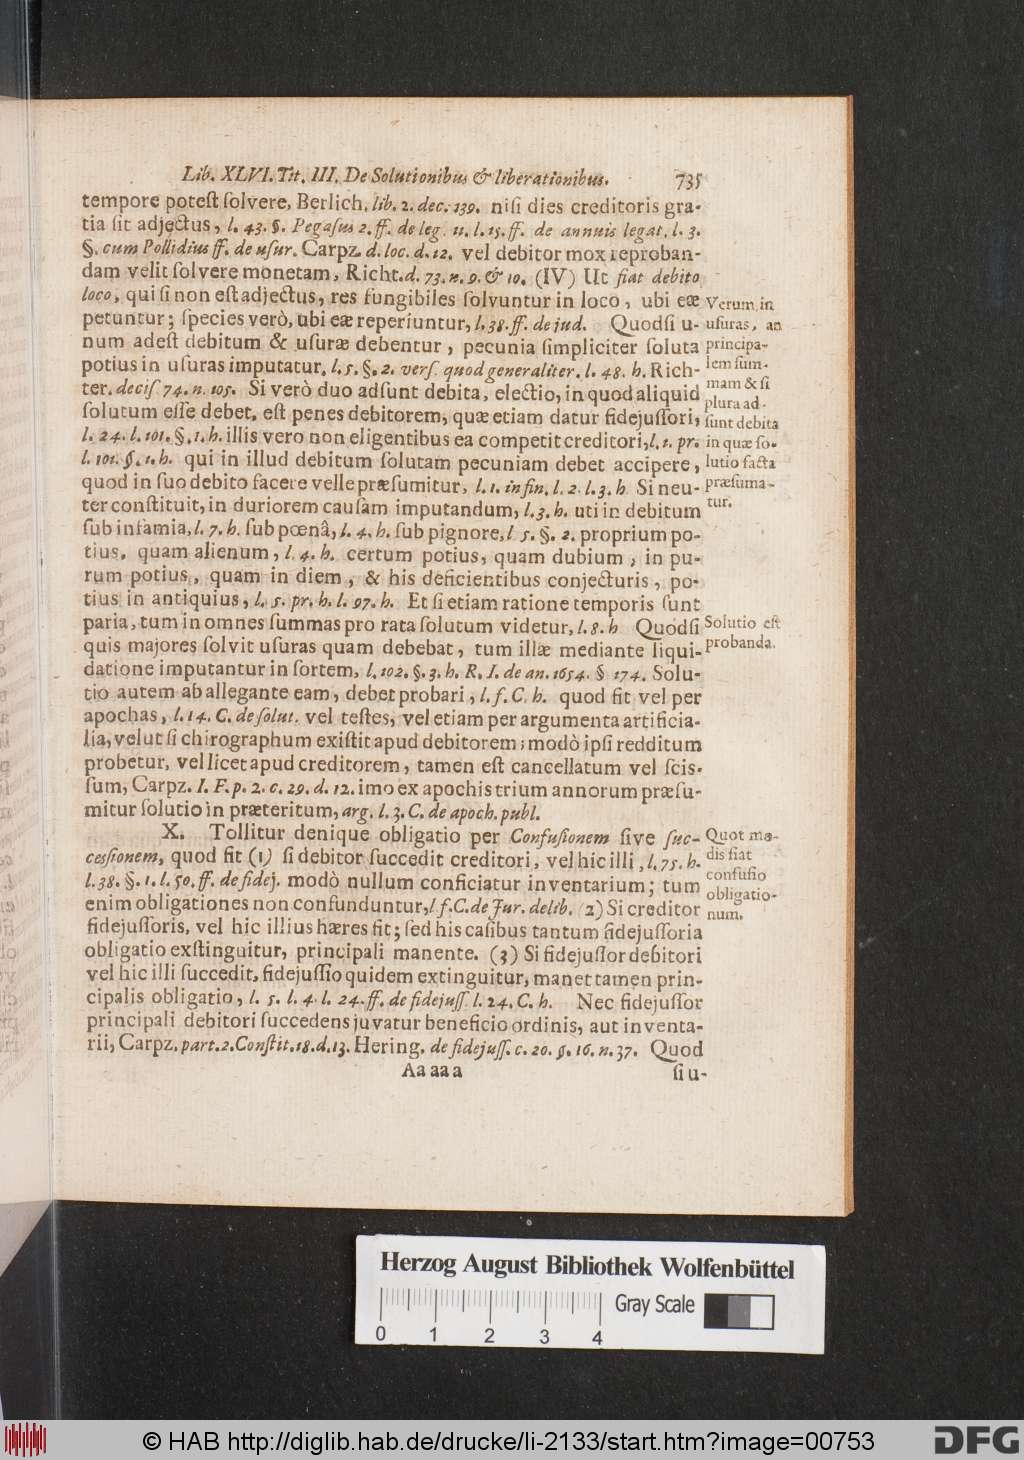 Lib. XLVI. Tit. III. De Solutionibus & liberationibus. 735
tempore potest solvere, Berlich. lib. 2. dec. 139. nisi dies creditoris gra-
tia sit adjectus, l. 43. §. Pegasus 2. ff. de leg. 11. l. 15. ff. de annuis legat. l. 3.
§. cum Pollidius ff. de usur. Carpz. d. loc. d. 12. vel debitor mox reproban-
dam velit solvere monetam, Richt. d. 73. n. 9. & 10. (IV) Ut fiat debito
loco, qui si non est adjectus, res fungibiles solvuntur in loco, ubi eæ
petuntur; species verò, ubi eæ reperiuntur, l. 38. ff. de jud. Quodsi u-
num adest debitum & usuræ debentur, pecunia simpliciter soluta
potius in usuras imputatur. l. 5. §. 2. vers. quod generaliter. l. 48. h. Rich-
ter. decis. 74. n. 105. Si verò duo adsunt debita, electio, in quod aliquid
solutum esse debet, est penes debitorem, quæ etiam datur fidejussori,
l. 24. l. 101. §. 1. h. illis vero non eligentibus ea competit creditori, l. 1. pr.
l. 101. §. 1. h. qui in illud debitum solutam pecuniam debet accipere,
quod in suo debito facere velle præsumitur, l. 1. in fin. l. 2. l. 3. h. Si neu-
ter constituit, in duriorem causam imputandum, l. 3. h. uti in debitum
sub infamia, l. 7. h. sub pœnâ, l. 4. h. sub pignore, l. 5. §. 2. proprium po-
tius, quam alienum, l. 4. h. certum potius, quam dubium, in pu-
rum potius, quam in diem, & his deficientibus conjecturis, po-
tius in antiquius, l. 5. pr. h. l. 97. h. Et si etiam ratione temporis sunt
paria, tum in omnes summas pro rata solutum videtur, l. 8. h Quodsi
quis majores solvit usuras quam debebat, tum illæ mediante liqui-
datione imputantur in sortem, l. 102. §. 3. h. R. I. de an. 1654. § 174. Solu-
tio autem ab allegante eam, debet probari, l. f. C. h. quod fit vel per
apochas, l. 14. C. de solut. vel testes, vel etiam per argumenta artificia-
lia, velut si chirographum existit apud debitorem; modò ipsi redditum
probetur, vel licet apud creditorem, tamen est cancellatum vel scis-
sum, Carpz. I. F. p. 2. c. 29. d. 12. imo ex apochis trium annorum præsu-
mitur solutio in præteritum, arg. l. 3. C. de apoch. publ.
X. Tollitur denique obligatio per Confusionem sive suc-
cessionem, quod fit (1) si debitor succedit creditori, vel hic illi, l. 75. h.
l. 38. §. 1. l. 50. ff. de fidej. modò nullum conficiatur inventarium; tum
enim obligationes non confunduntur, l f. C. de Jur. delib. (2) Si creditor
fidejussoris, vel hic illius hæres fit; sed his casibus tantum fidejussoria
obligatio exstinguitur, principali manente. (3) Si fidejussor debitori
vel hic illi succedit, fidejussio quidem extinguitur, manet tamen prin-
cipalis obligatio, l. 5. l. 4. l. 24. ff. de fidejuss. l. 24. C. h. Nec fidejussor
principali debitori succedens juvatur beneficio ordinis, aut inventa-
rii, Carpz. part. 2. Constit. 18. d. 13. Hering. de fidejuss. c. 20. §. 16. n. 37. Quod
Aa aa a si u-
Verum in
usuras, an
principa-
lem sum-
mam & si
plura ad-
sunt debita
in quæ so-
lutio facta
præsuma-
tur.
Solutio est
probanda.
Quot mo-
dis fiat
confusio
obligatio-
num.
Herzog August Bibliothek Wolfenbüttel
0 1 2 3 4
Gray Scale
© HAB http://diglib.hab.de/drucke/li-2133/start.htm?image=00753
DFG